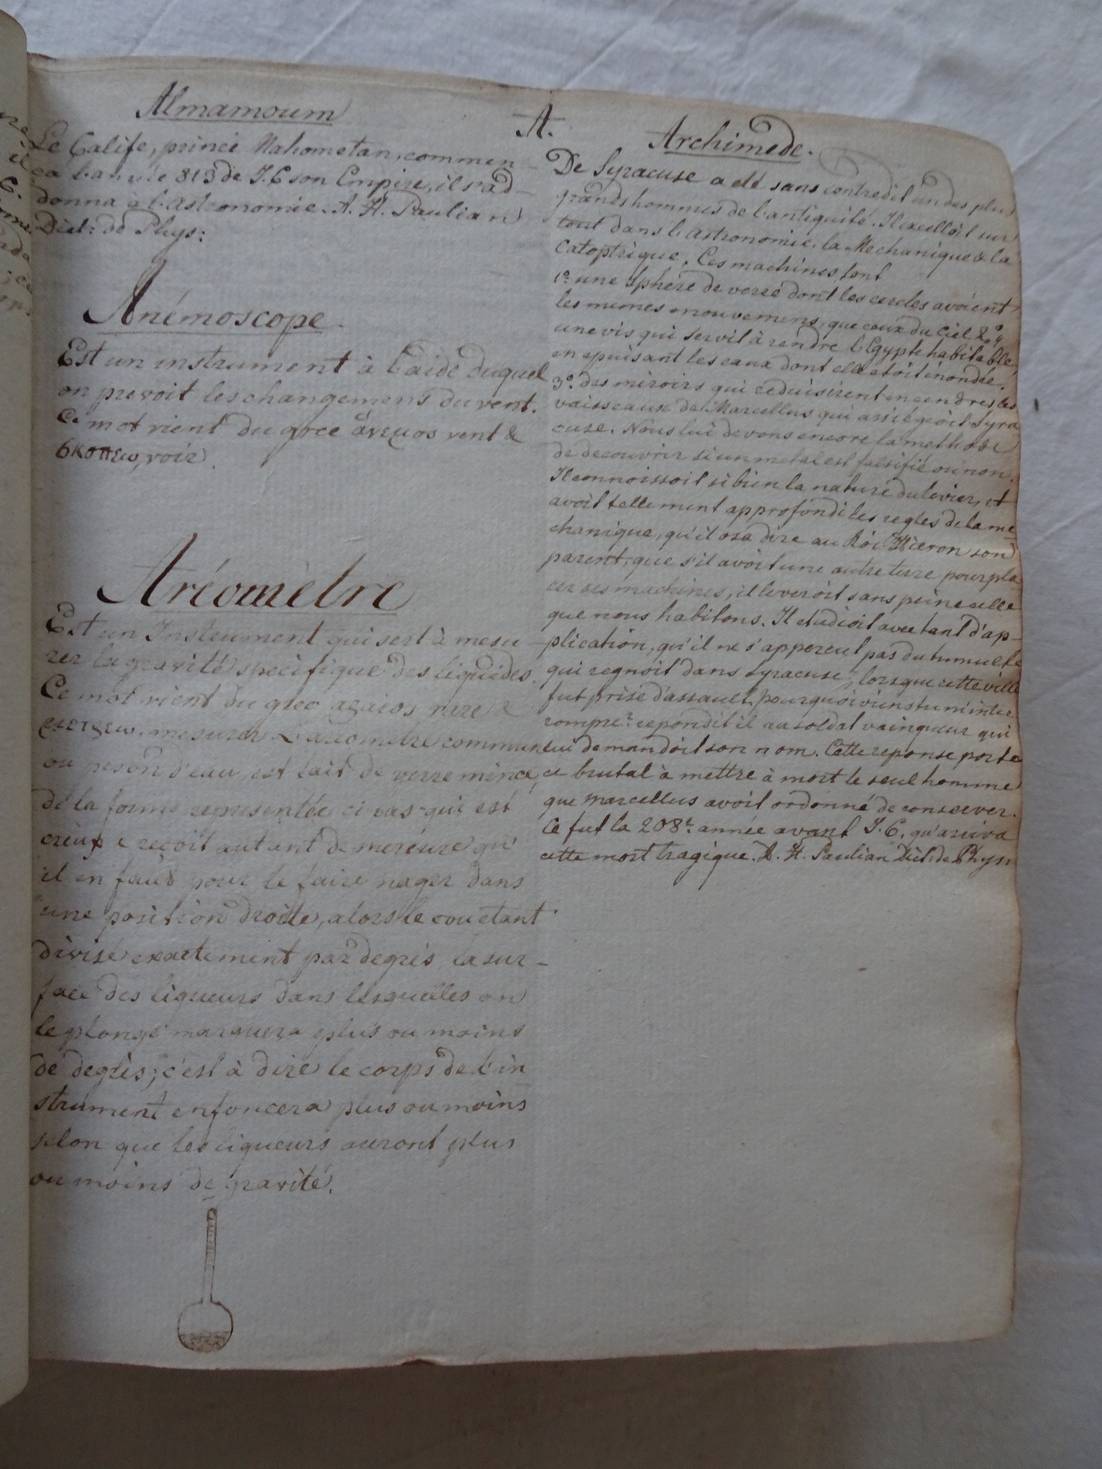 A.
Almamoum
Le Calife, prince Mahometan, commen
ça l'an de 813 de J.C son Empire, il s'ad-
donna à l'Astronomie. A. H. Paulian
Dict: de Phys:
Anémoscope.
Est un instrument à l'aide duquel
on prevoit les changemens du vent.
Ce mot vient du grec ἄνεμος vent &
σκοπεω, voir.
Aréomètre
Est un Instrument qui sert à mesu-
rer la gravité specifique des liquides.
Ce mot vient du grec araios rare &
mesurer L'areometre commun
ou peson d'eau, est fait de verre mince,
de la forme representée ci bas qui est
creux & reçoit autant de mercure qu'
il en faut pour le faire nager dans
une position droite, alors le cou étant
divisé exactement par degrés la sur-
face des liqueurs dans lesquelles on
le plonge marquera plus ou moins
de degrés; c'est à dire le corps de l'in
strument enfoncera plus ou moins
selon que les liqueurs auront plus
ou moins de gravité.
Archimede.
De Syracuse a été sans contredit un des plus
grands hommes de l'antiquité. Il excelloit sur
tout dans l'Astronomie, la Mechanique & la
Catoptrique. Ces machines sont
1º une sphere de verre dont les cercles avoient
les memes mouvemens que ceux du Ciel 2.º
une vis qui servit à rendre l'Egypte habitable,
en epuisant les eaux dont elle etoit inondée.
3º. des miroirs qui reduisirent en cendres les
vaisseaux de Marcellus qui assiégeoit Syra
cuse. Nous lui devons encore la methode
de decouvrir si un metal est falsifié ou non.
Il connoissoit si bien la nature du levier, et
avoit tellement approfondi les regles de la me
chanique, qu'il osa dire au Roi Hieron son
parent, que s'il avoit une autre terre pour pla
cer ses machines, il leveroit sans peine celle
que nous habitons. Il etudioit avec tant d'ap-
plication, qu'il ne s'apperçut pas du tumulte
qui regnoit dans Syracuse, lorsque cette ville
fut prise d'assaut, pourquoi viens tu m'inter
rompre? repondit il au soldat vainqueur qui
lui demandoit son nom. Cette reponse porte
ce brutal à mettre à mort le seul homme
que Marcellus avoit ordonné de conserver.
Ce fut la 208e année avant J. C. qu'arriva
cette mort tragique. A. H. Paulian Dict: de Phys: